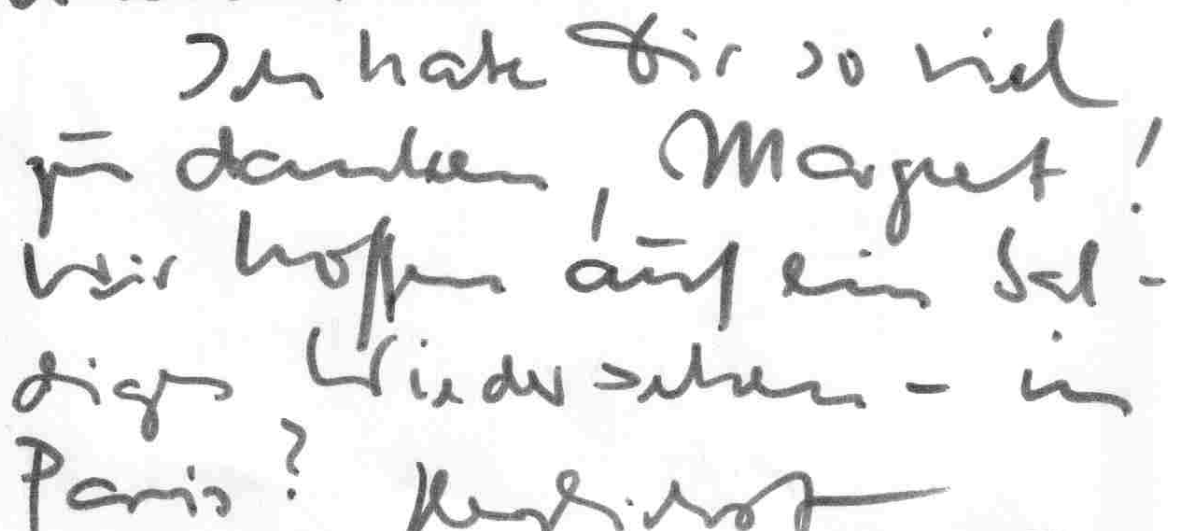 Ich habe Dir so viel
zu danken, Margret!
Wir hoffen auf ein bal-
diges Wiedersehen - in
Paris? Herzlichst